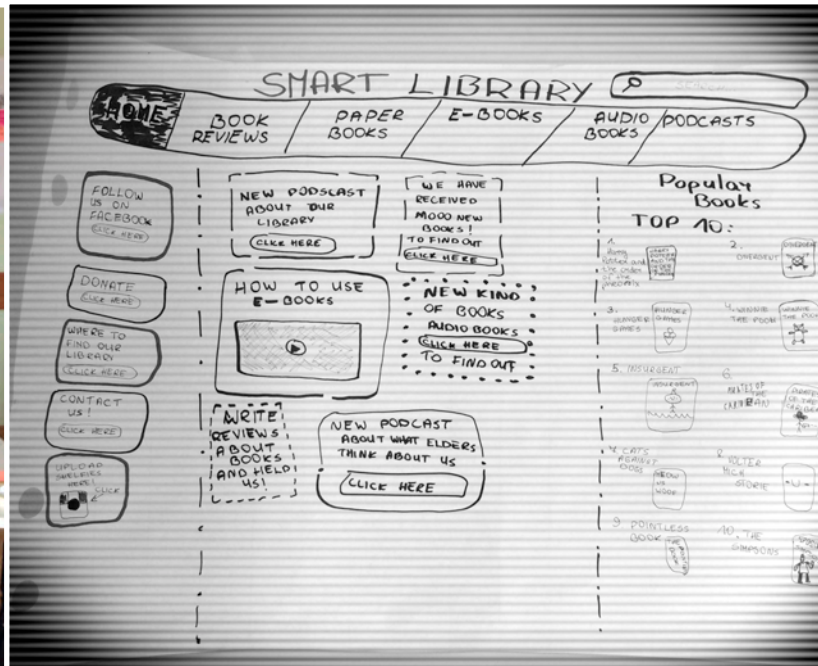 SMART LIBRARY
SEARCH
HOME
BOOK
REVIEWS
PAPER
BOOKS
E-BOOKS
AUDIO
BOOKS
PODCASTS
FOLLOW
US ON
FACEBOOK
CLICK HERE
DONATE
CLICK HERE
WHERE TO
FIND OUR
LIBRARY
CLICK HERE
CONTACT
US!
CLICK HERE
UPLOAD
HERE!
CLICK
NEW PODSCAST
ABOUT OUR
LIBRARY
CLICK HERE
WE HAVE
RECEIVED
NEW
BOOKS!
TO FIND OUT
CLICK HERE
HOW TO USE
E-BOOKS
NEW KIND
OF BOOKS
AUDIO BOOKS
CLICK HERE
TO FIND OUT
WRITE
REVIEWS
ABOUT
BOOKS
AND HELP
US!
NEW PODCAST
ABOUT WHAT ELDERS
THINK ABOUT US
CLICK HERE
Popular
Books
TOP 10:
1.
and
the order
of the
2.
DIVERGENT
3.
HUNGER
GAMES
HUNGER
GAMES
4. WINNIE
THE POOH
WINNIE
THE POOH
5. INSURGENT
INSURGENT
6.
PIRATES OF
THE
CARIBBEAN
7. CATS
AGAINST
DOGS
MEOW
VS
WOOF
8.
9. POINTLESS
BOOK
10. THE
SIMPSONS